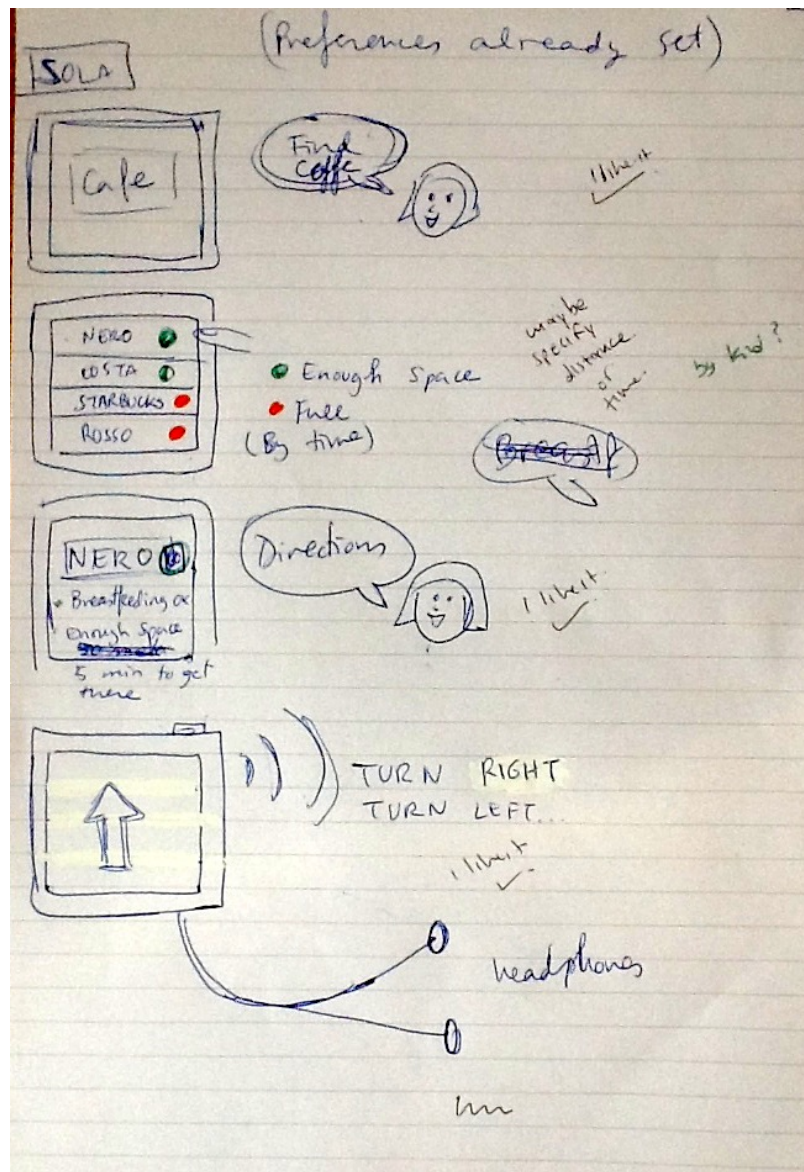 (Preferences already set)
SOLA
Cafe
Find
Coffe
I like it
NERO
COSTA
STARBUCKS
ROSSO
Enough Space
Full
(By time)
maybe
specify
distance
or
time.
by kid?
NERO
Breastfeeding ok
enough space
5 min to get
there
Directions
I like it
TURN RIGHT
TURN LEFT...
I like it
headphones